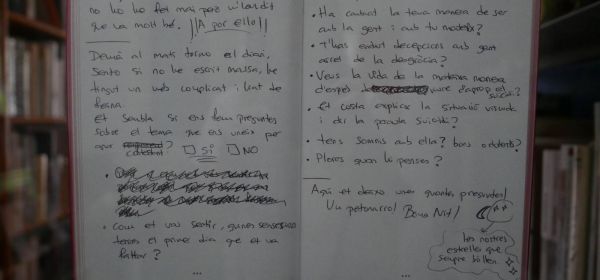 no ho he fet mai però m'han dit
que va molt bé. ¡¡A por ello!!
Demà al matí torno el diari,
sento si no he escrit massa, he
tingut un web complicat i liat de
feina.
Et sembla si ens fem preguntes
sobre el tema que ens uneix per
anar ? Sí NO
• com et vas sentir, quines sensacions
tens el primer dia que et va
faltar?
...
• Ha canviat la teva manera de ser
amb la gent i amb tu mateix?
• T'has endut decepcions amb gent
arrel de la desgràcia?
• Veus la vida de la mateixa manera
després de viure d'aprop el
suïcidi?
• Et costa explicar la situació viscuda
i dir la paraula suïcidi?
• tens somnis amb ella? bons o dolents?
• Plores quan hi penses?
Aquí et deixo unes quantes preguntes!
Un petonarro! Bona Nit!
les nostres
estrelles que
sempre brillen.
...